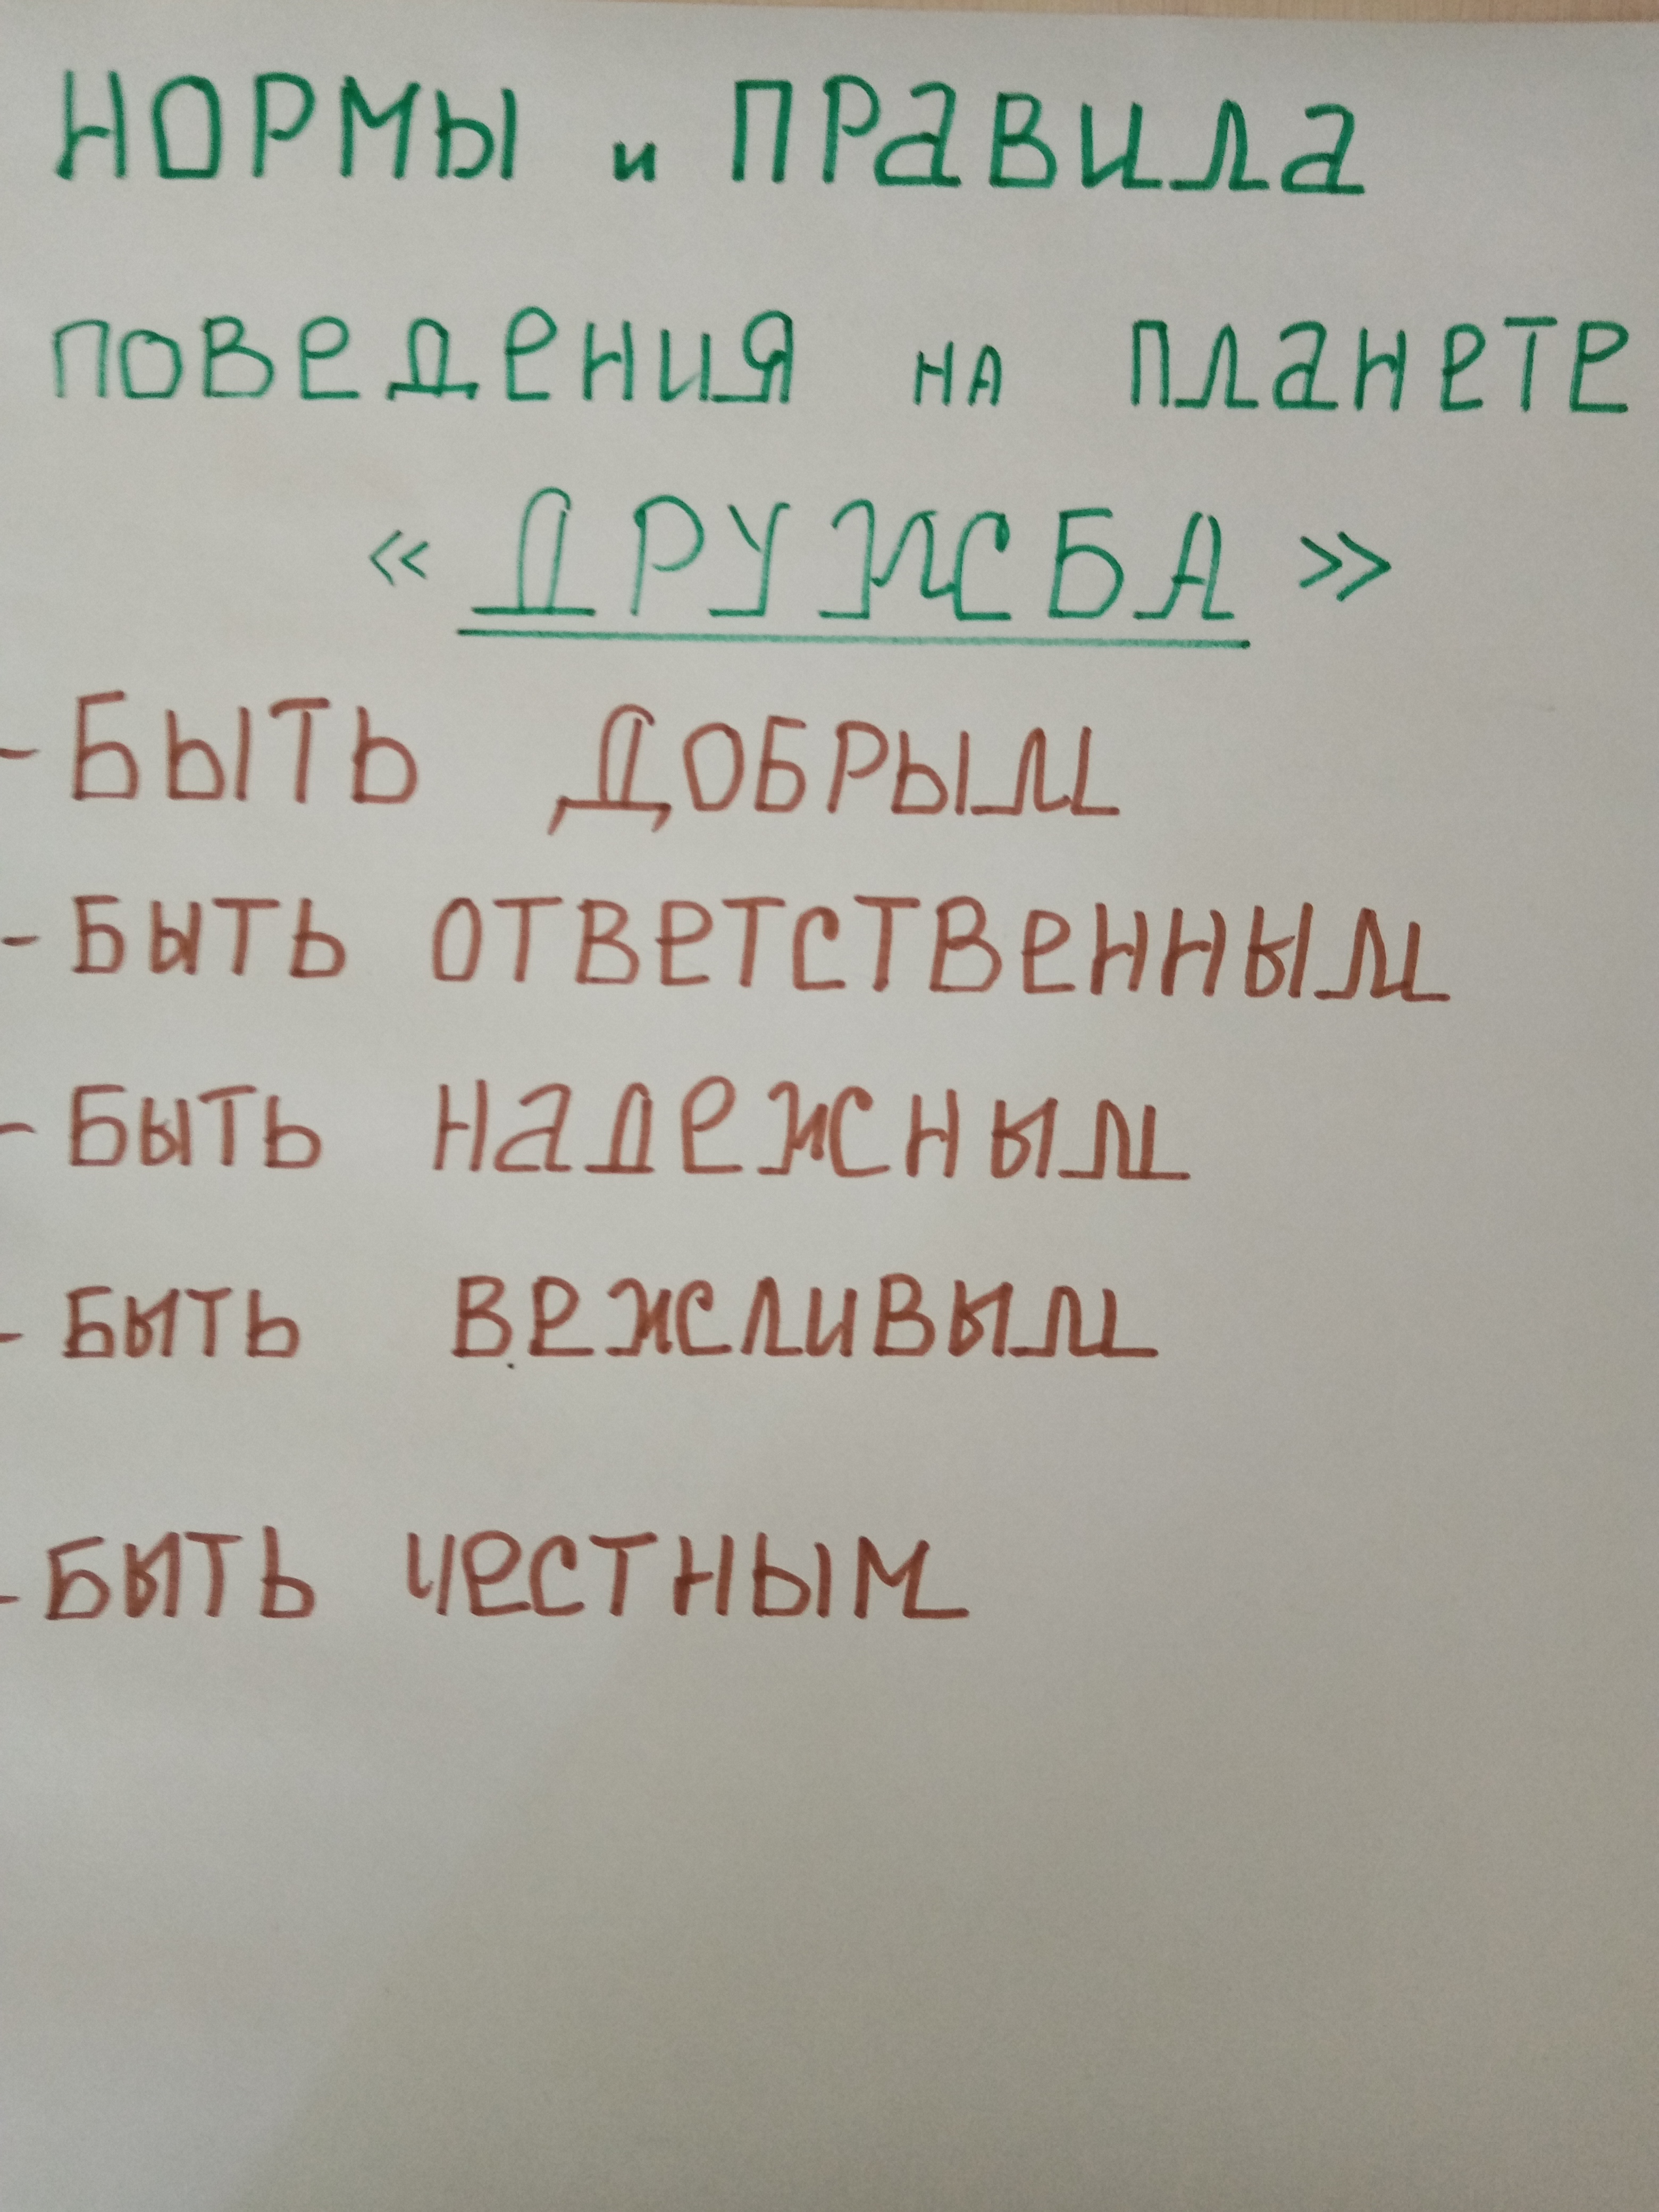 НОРМЫ и ПРАВИЛА
ПОВЕДЕНИЯ НА ПЛАНЕТЕ
« ДРУЖБА »
- БЫТЬ ДОБРЫМ
- БЫТЬ ОТВЕТСТВЕННЫМ
- БЫТЬ НАДЕЖНЫМ
- БЫТЬ ВЕЖЛИВЫМ
- БЫТЬ ЧЕСТНЫМ